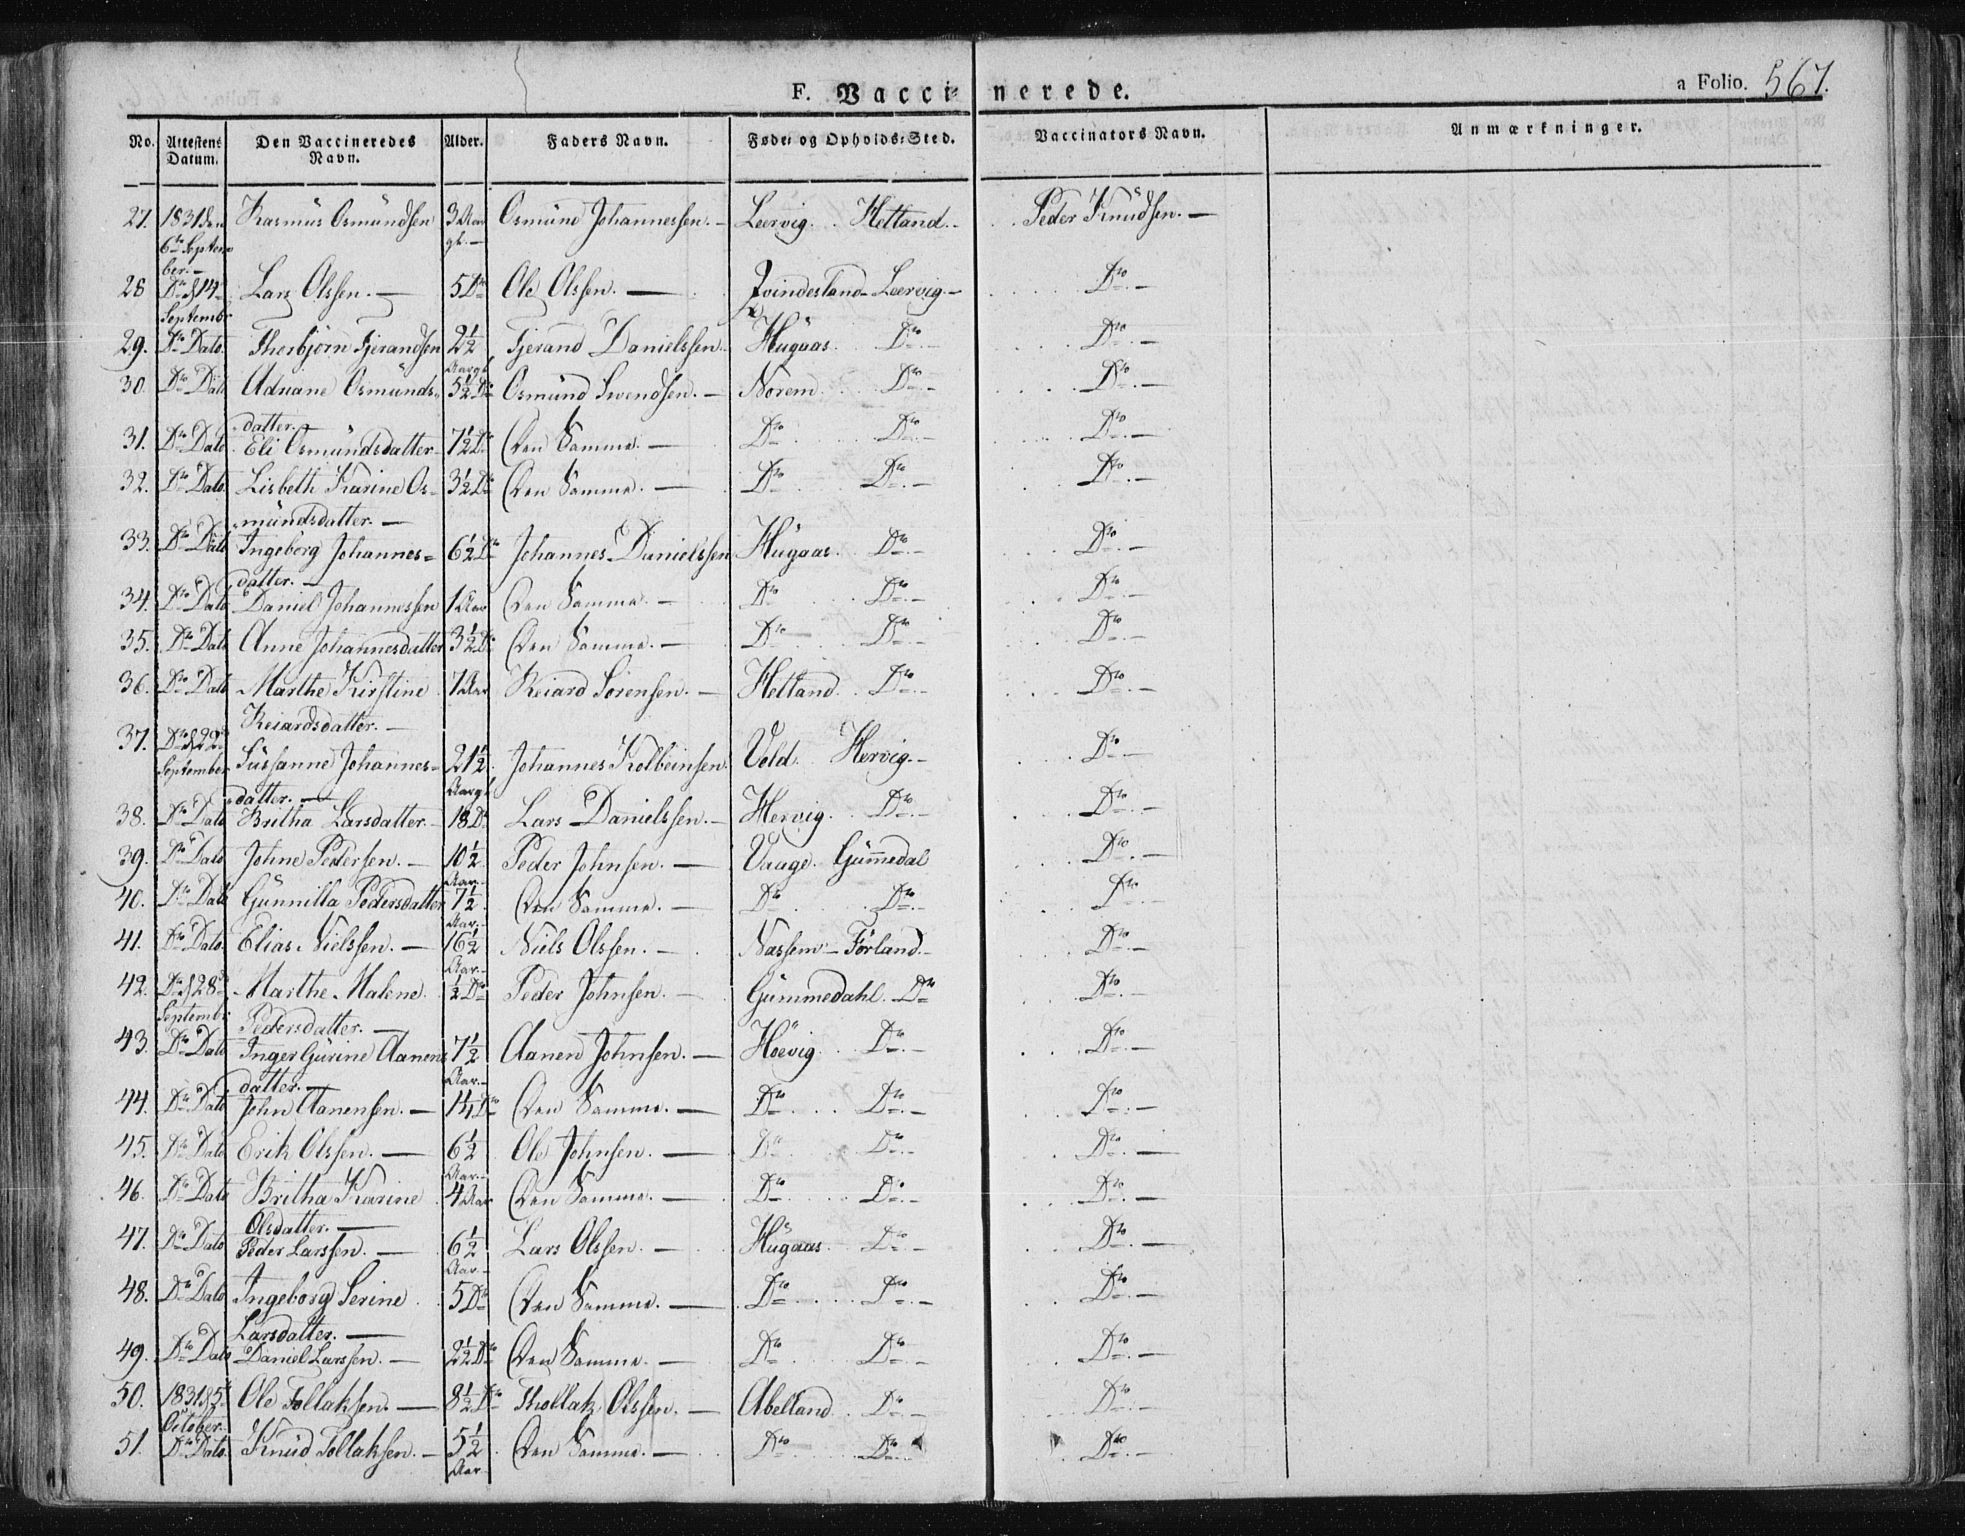 F. Vaccinerede. a Folio. 567.
No. Attestens Datum. Den Vaccineredes Navn. Alder. Faders Navn. Føde- og Opholds-Sted. Vaccinators Navn. Anmærkninger.
27. 1831 den Rasmus Osmundsen 3 Aar Osmund Johannessen. — Leervig. Hetland. Peder Knudsen. —
6te Septem gl. —
ber. —
28 Do d 14de Lars Olssen. — 5 Do Ole Olssen. — Qvindesland Leervig. — Do. —
Septembr
29. Do Dato. Thorbjørn Tjerandsen 2½ Tjerand Danielssen. Hugaas. Do — Do. —
Aar gl
30. Do Dato Adriane Osmunds- 5½ Do Osmund Svendsen. — Norem. Do — Do. —
datter. —
31. Do Dato Eli Osmundsdatter 7½ Do Den Samme. — Do Do. — Do. —
32. Do Dato. Lisbeth Karine Os- 3½ Do Den Samme. — Do. Do. — Do. —
mundsdatter. —
33. Do Dato Ingeborg Johannes- 6½ Do Johannes Danielssen Hugaas. Do. — Do. —
datter. —
34. Do Dato Daniel Johannessen 1 Aar Den Samme. — Do Do. — Do. —
35. Do Dato Anne Johannesdatter 3½ Do Den Samme. — Do Do. — Do. —
36. Do Dato Marthe Kirstine 7 Aar Reiard Sørensen. — Hetland. Do. — Do. —
Reiardsdatter. —
37. Do d 22de Susanne Johannes- 21½ Johannes Kolbeinsen. Vold. Hervig. — Do —
September Aar gl
datter. —
38. Do Dato Britha Larsdatter. — 18 Do Lars Danielssen. — Hervig. Do. — Do. —
39. Do Dato Johne Pedersen. — 10½ Peder Johnsen. — Vaage. Gummedal Do. —
Aar. —
40. Do Dato Gunnilla Pedersdatter 7½ Den Samme. — Do Do. — Do. —
Aar. —
41. Do Dato. Elias Nielssen. — 16½ Niels Olssen. — Nassem — Førland. — Do. —
Aar. —
42. Do d 28de Marthe Malene ½ Do Peder Johnsen. — Gummedahl. Do Do. —
Septembr Pedersdatter. —
43. Do Dato Inger Gurine Aanens 7½ Aanen Johnsen. — Høevig. Do. — Do. —
datter. — Aar. —
44. Do Dato John Aanensen. — 1¼ Do Den Samme. — Do. Do. — Do. —
45. Do Dato Erik Olssen. — 6½ Ole Johnsen. — Do Do. — Do. —
Aar. —
46. Do Dato Britha Karine 4 Aar Den Samme. — Do Do. — Do. —
Olsdatter. —
47. Do Dato Peder Larssen. — 6½ Lars Olssen. — Hugaas. Do — Do. —
Aar —
48. Do Dato Ingeborg Serine 5 Do Den Samme. — Do Do. — Do. —
Larsdatter. —
49. Do Dato Daniel Larssen. — 2½ Do Den Samme. — Do Do. — Do. —
50. 1831 d 5te Ole Tollaksen. — 8½ Do Thollak Olssen. — Abelland. Do. — Do. —
October.
51. Do Dato. Knud Tollaksen. — 5½ Den Samme. — Do Do. Do. —
Aar